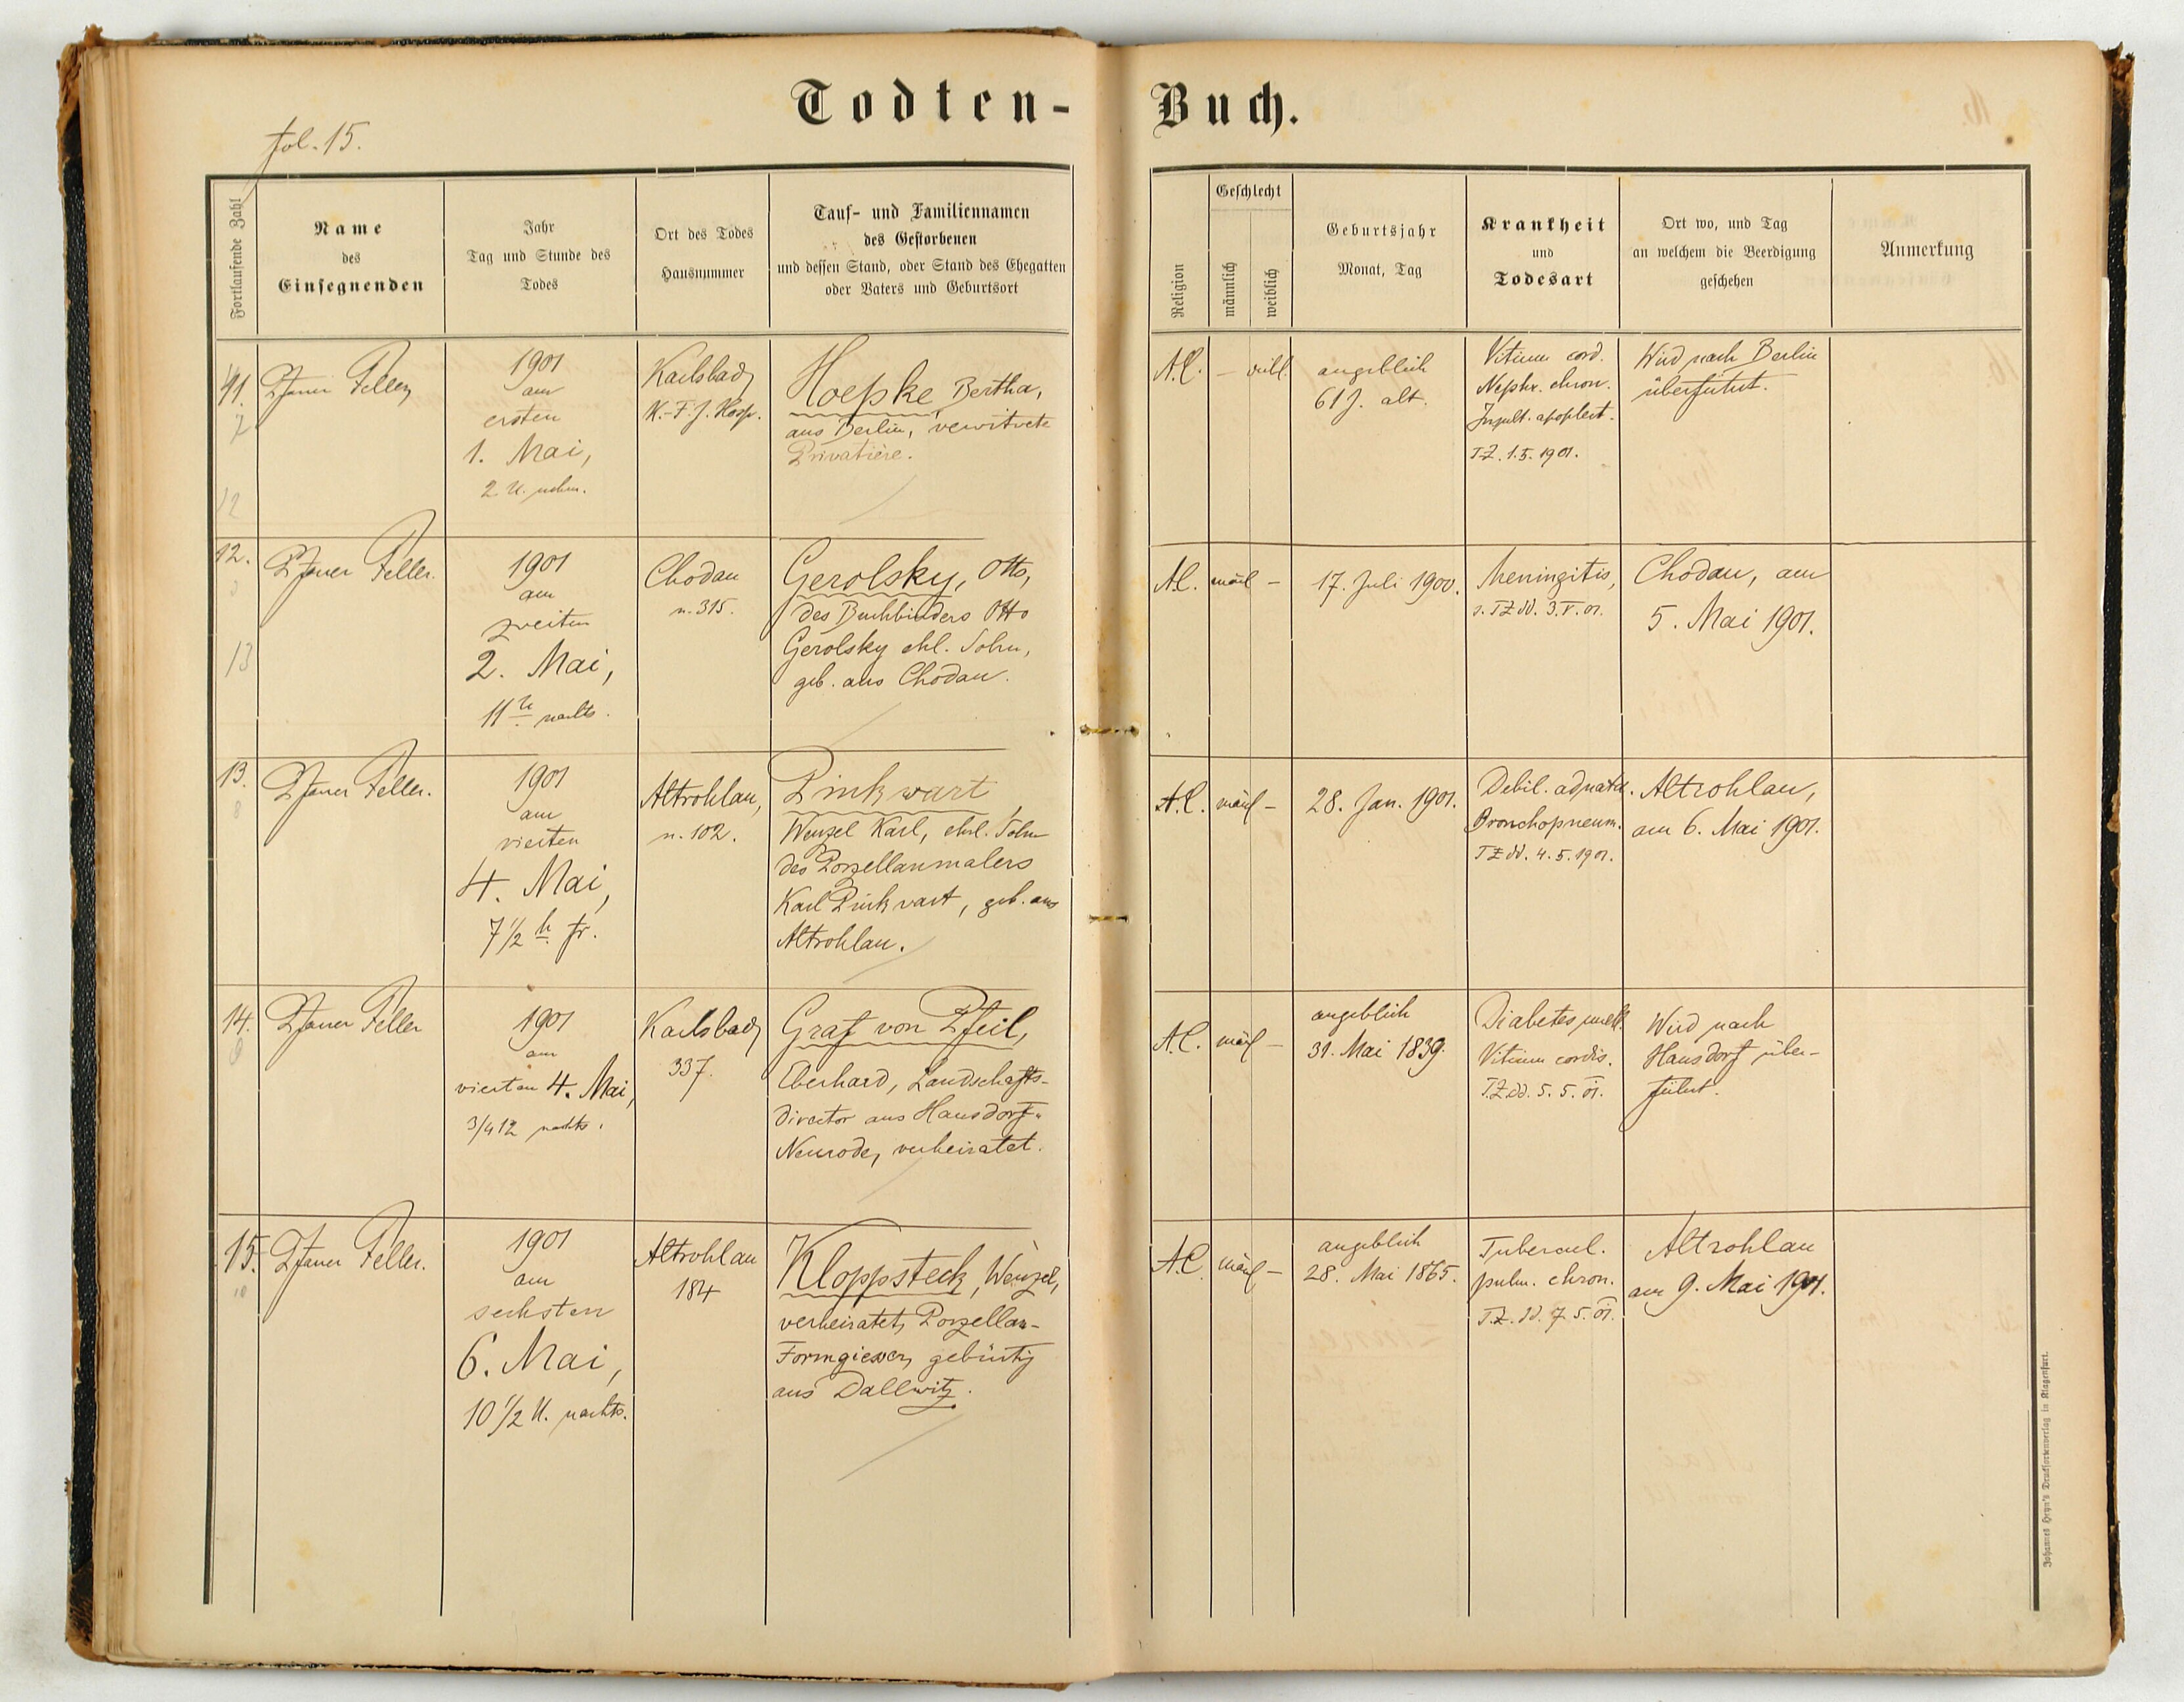 Todten-Buch.
fol. 15.
Fortlaufende Zahl
Name
des
Einsegnenden
Jahr
Tag und Stunde des
Todes
Ort des Todes
Hausnummer
Tauf- und Familiennamen
des Gestorbenen
und dessen Stand, oder Stand des Ehegatten
oder Vaters und Geburtsort
Religion
Geschlecht
männlich
weiblich
Geburtsjahr
Monat, Tag
Krankheit
und
Todesart
Ort wo, und Tag
an welchem die Beerdigung
geschehen
Anmerkung
11.
Pfarrer Feller
1901
am
ersten
1. Mai,
2 U. nchm.
Karlsbad,
K.-F.J. Hosp.
Hoepke, Bertha,
aus Berlin, verwitwete
Privatière.
A.C.
– weibl.
angeblich
61 J. alt.
Vitium cord.
Nephr. chron.
Insult. apoplect.
T.Z. 1.5.1901.
Wird nach Berlin
überführt.
12
12.
Pfarrer Feller.
1901
am
zweiten
2. Mai,
11 U. nachts.
Chodau
n. 315.
Gerolsky, Otto,
des Buchbinders Otto
Gerolsky ehl. Sohn,
geb. aus Chodau.
A.C.
männl –
17. Juli 1900.
Meningitis,
s. TZ dd. 3.V.01.
Chodau, am
5. Mai 1901.
13
13.
Pfarrer Feller.
1901
am
vierten
4. Mai,
7 1/2 h fr.
Altrohlau,
n. 102.
Pinkwart,
Wenzel Karl, ehel. Sohn
des Porzellanmalers
Karl Pinkwart, geb. aus
Altrohlau.
A.C.
männl –
28. Jan. 1901.
Debil. adnata.
Bronchopneum.
TZ dd. 4.5.1901.
Altrohlau,
am 6. Mai 1901.
14.
Pfarrer Feller
1901
am
vierten 4. Mai,
3/4 12 nachts.
Karlsbad,
337.
Graf von Pfeil,
Eberhard, Landschafts-
director aus Hausdorf-
Neurode, verheiratet.
A.C.
männl –
angeblich
31. Mai 1839.
Diabetes mell.
Vitium cordis.
T.Z. dd. 5.5.01.
Wird nach
Hausdorf über-
führt.
15.
Pfarrer Feller.
1901
am
sechsten
6. Mai,
10 1/2 U. nachts.
Altrohlau
184
Kloppsteck, Wenzel,
verheiratet, Porzellan-
Formgiesser, gebürtig
aus Dallwitz.
A.C.
männl –
angeblich
28. Mai 1865.
Tubercul.
pulm. chron.
T.Z. dd. 7.5.01.
Altrohlau
am 9. Mai 1901.
Johannes Heyn's Drucksortenverlag in Klagenfurt.